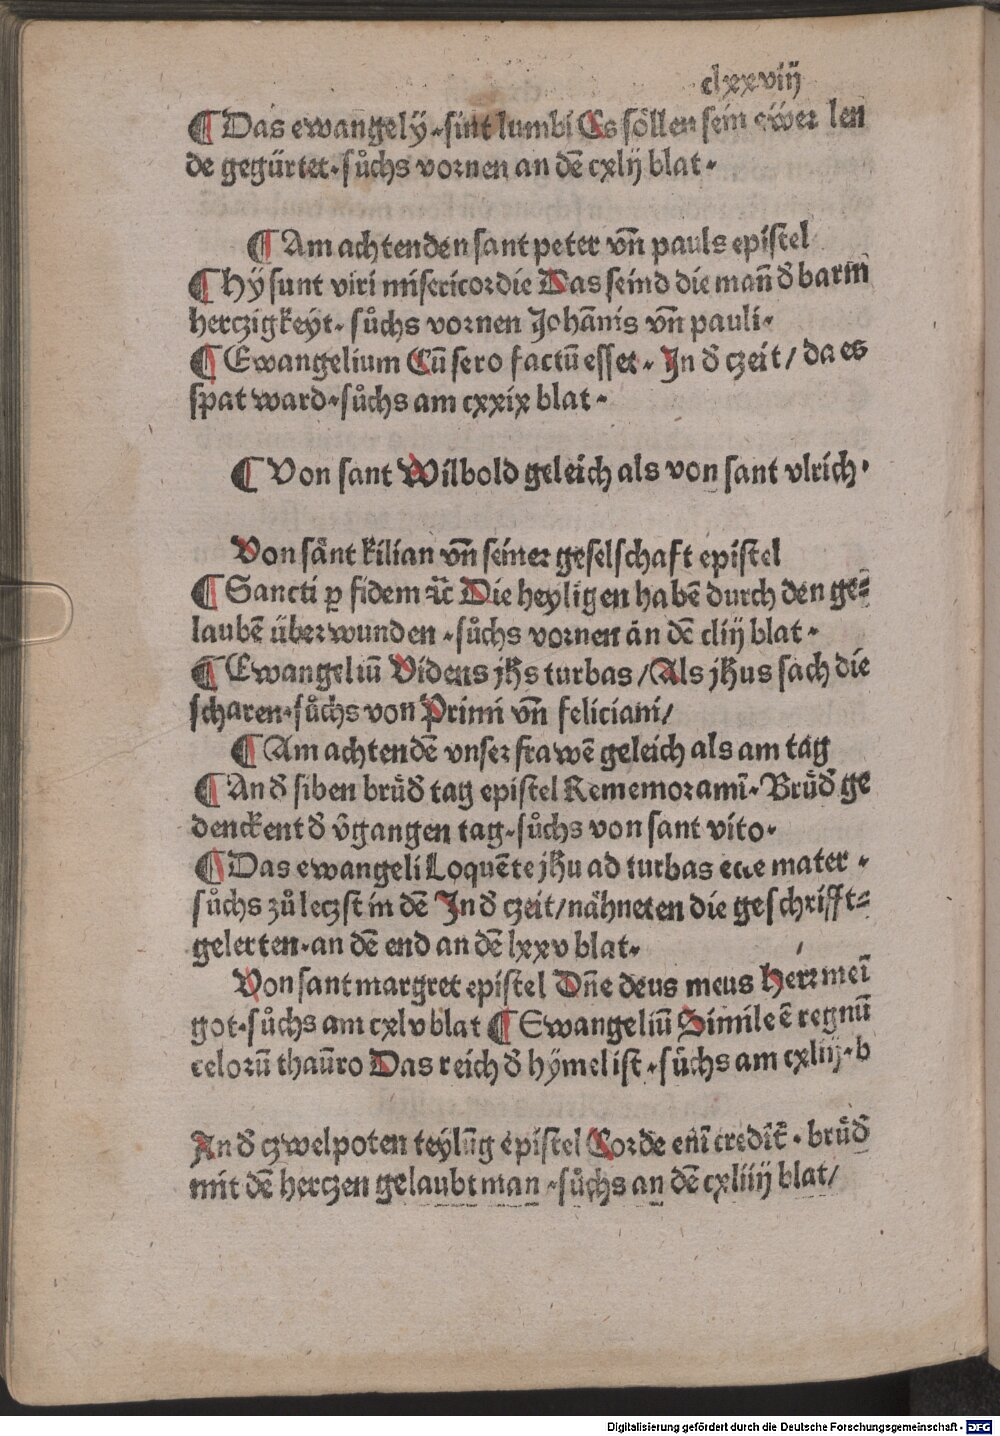 clxxviij
¶ Das ewangelÿ · sint lumbi Es söllen sein eẅer len
de gegürtet · sůchs vornen an dē cxlij blat ·
¶ Am achtenden sant peter vn̄ pauls epistel
¶ Hÿ sunt viri misericordie Das seind die man̄ d̄ barm
herczigkeyt · sůchs vornen Johānis vn̄ pauli ·
¶ Ewangelium Cū sero factū esset · In d̄ czeit / da es
spat ward · sůchs am cxxix blat ·
¶ Von sant Wilbold geleich als von sant vlrich ·
Von sānt kilian vn̄ seiner geselschaft epistel
¶ Sancti ꝑ fidem ꝛc̄ Die heyligen habē durch den ge⸗
laubē überwunden · sůchs vornen an dē cliij blat ·
¶ Ewangeliū Videns jh̄s turbas / Als jh̄us sach die
scharen · sůchs von Primi vn̄ feliciani /
¶ Am achtendē vnser frawē geleich als am tag
¶ An d̄ siben brůd̄ tag epistel Rememoramī · Brůd̄ ge
denckent d̄ v̄gangen tag · sůchs von sant vito ·
¶ Das ewangeli Loquēte jh̄u ad turbas ecce mater ·
sůchs zů leczst in dē In d̄ czeit / nähneten die geschrifft⸗
gelerten · an dē end an dē lxxv blat ·
Von sant margret epistel Dn̄e deus meus Herr meī
got · sůchs am cxlv blat ¶ Ewangeliū Simile ē regnū
celorū thaūro Das reich d̄ hÿmel ist · sůchs am cxliij · b
An d̄ czwelpoten teylūg epistel Corde enī credīt̄ · brůd̄
mit dē herczen gelaubt man · sůchs an dē cxliiij blat /
Digitalisierung gefördert durch die Deutsche Forschungsgemeinschaft - DFG